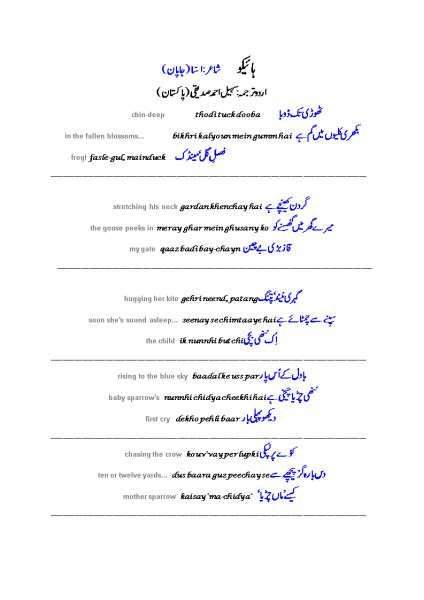 ہائیکو شاعر: اِسّا (جاپان)
اردو ترجمہ: سہیل احمد صدیقی (پاکستان)
chin-deep thodi tuck dooba ٹھوڑی تک ڈوبا
in the fallen blossoms... bikhri kalyoun mein gumm hai بکھری کلیوں میں گم ہے
frog! fasle-gul, mainduck فصلِ گل، مینڈک
stretching his neck gardan khenchay hai گردن کھینچے ہے
the goose peeks in meray ghar mein ghusany ko میرے گھر میں گھسنے کو
my gate qaaz badi bay-chayn قاز بڑی بے چین
hugging her kite gehri neend, patang گہری نیند، پتنگ
soon she's sound asleep... seenay se chimtaaye hai سینے سے چمٹائے ہے
the child ik nunnhi butchi اِک ننھی بچّی
rising to the blue sky baadal ke uss paar بادل کے اُس پار
baby sparrow's nunnhi chidya cheekhi hai ننھی چڑیا چیخی ہے
first cry dekho pehli baar دیکھو پہلی بار
chasing the crow kouv'vay per lupki کوّے پر لپکی
ten or twelve yards... dus baara guz peechay se دس بارہ گز پیچھے سے
mother sparrow kaisay 'ma-chidya' کیسے 'ماں چڑیا'